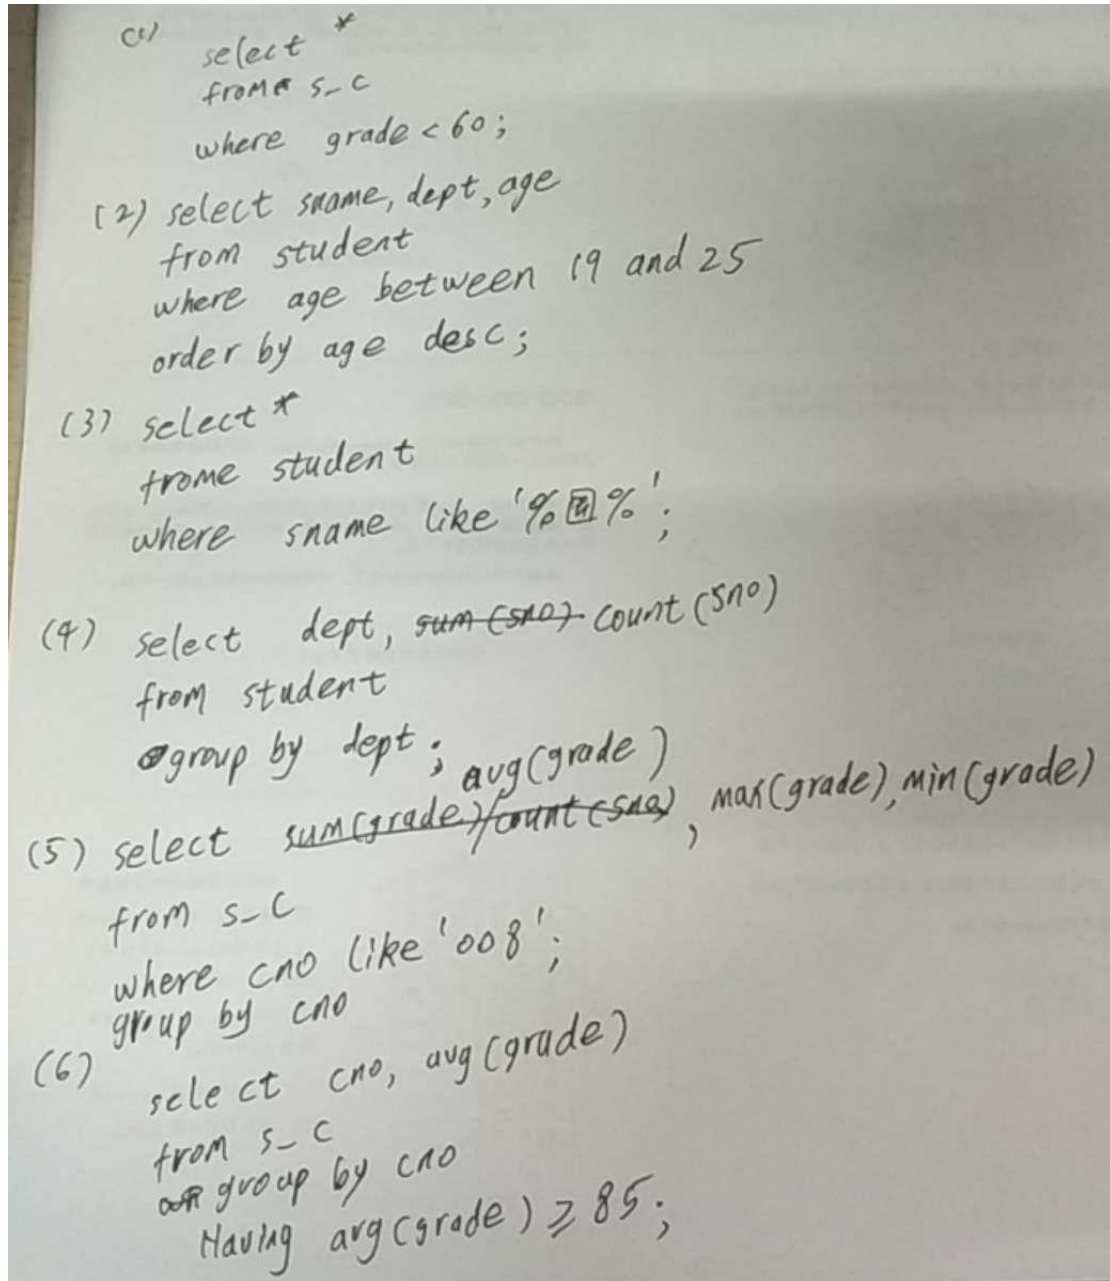 (1)
select *
from s_c
where grade < 60;
(2) select sname, dept, age
from student
where age between 19 and 25
order by age desc;
(3) select *
frome student
where sname like '%国%';
(4) select dept, sum(sno) count(sno)
from student
group by dept;
avg(grade)
(5) select sum(grade)/count(sno), max(grade), min(grade)
from s_c
where cno like '008';
group by cno
(6)
select cno, avg(grade)
from s_c
group by cno
Having avg(grade) ⩾ 85;